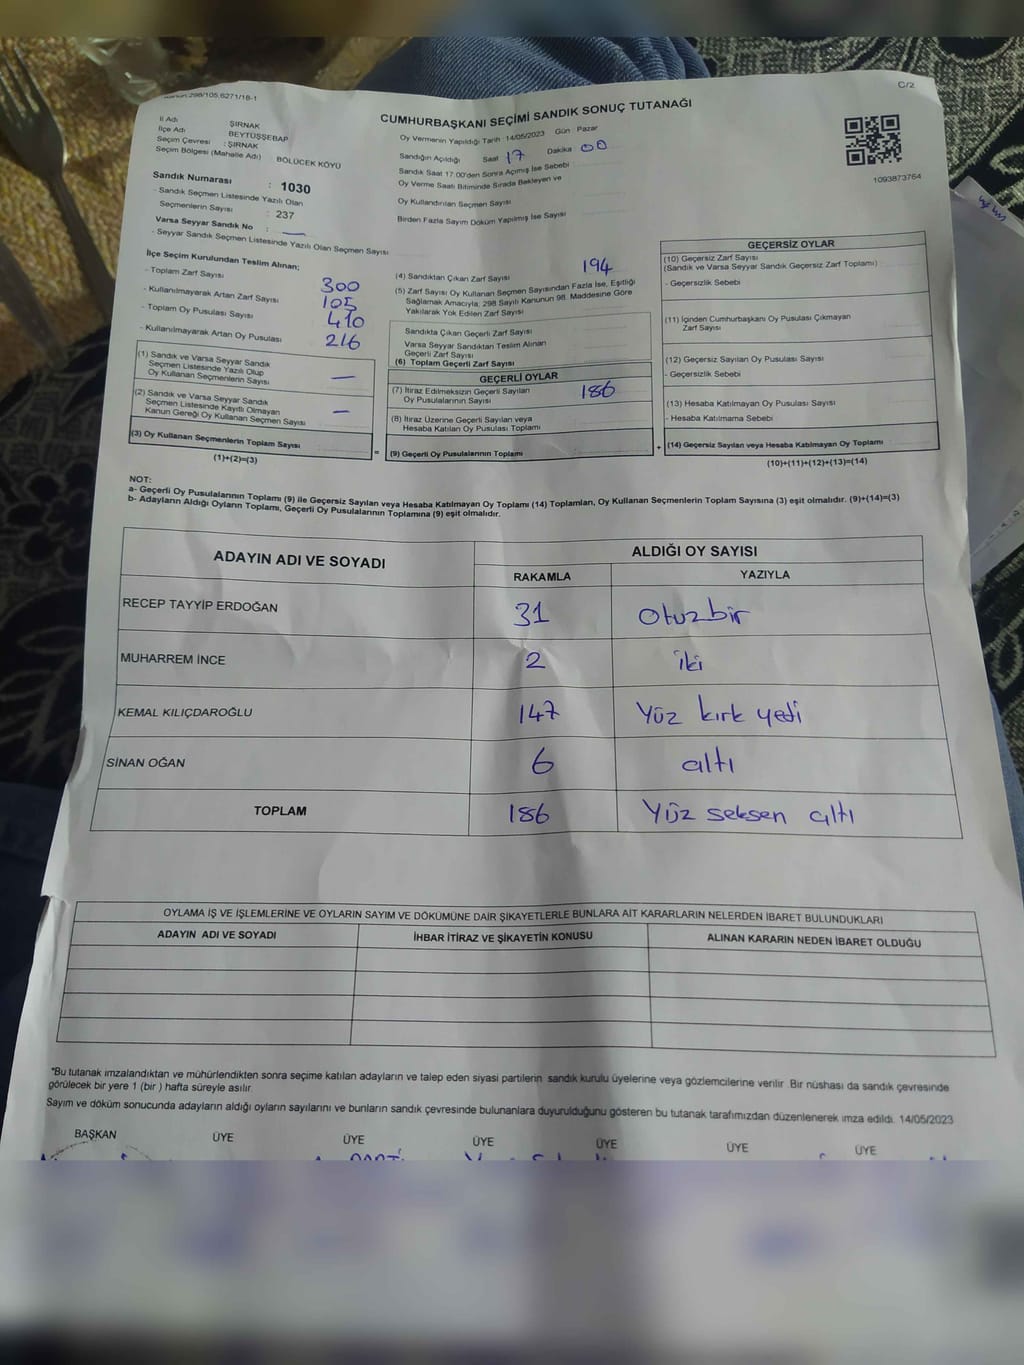 C/2
298/105,6271/18-1
CUMHURBAŞKANI SEÇİMİ SANDIK SONUÇ TUTANAĞI
İl Adı : ŞIRNAK
İlçe Adı : BEYTÜŞŞEBAP
Seçim Çevresi : ŞIRNAK
Seçim Bölgesi (Mahalle Adı) BÖLÜCEK KÖYÜ
Sandık Numarası : 1030
- Sandık Seçmen Listesinde Yazılı Olan
Seçmenlerin Sayısı : 237
Varsa Seyyar Sandık No : —
- Seyyar Sandık Seçmen Listesinde Yazılı Olan Seçmen Sayısı
Oy Vermenin Yapıldığı Tarih 14/05/2023 Gün : Pazar
Sandığın Açıldığı Saat 17 Dakika 00
Sandık Saat 17.00'den Sonra Açımış İse Sebebi
Oy Verme Saati Bitiminde Sırada Bekleyen ve
Oy Kullandırılan Seçmen Sayısı
Birden Fazla Sayım Döküm Yapılmış İse Sayısı
1093873764
İlçe Seçim Kurulundan Teslim Alınan;
- Toplam Zarf Sayısı 300
- Kullanılmayarak Artan Zarf Sayısı 105
- Toplam Oy Pusulası Sayısı 410
- Kullanılmayarak Artan Oy Pusulası 216
(1) Sandık ve Varsa Seyyar Sandık
Seçmen Listesinde Yazılı Olup
Oy Kullanan Seçmenlerin Sayısı —
(2) Sandık ve Varsa Seyyar Sandık
Seçmen Listesinde Kayıtlı Olmayan
Kanun Gereği Oy Kullanan Seçmen Sayısı —
(3) Oy Kullanan Seçmenlerin Toplam Sayısı
(1)+(2)=(3)
(4) Sandıktan Çıkan Zarf Sayısı 194
(5) Zarf Sayısı Oy Kullanan Seçmen Sayısından Fazla İse, Eşitliği
Sağlamak Amacıyla; 298 Sayılı Kanunun 98. Maddesine Göre
Yakılarak Yok Edilen Zarf Sayısı
Sandıkta Çıkan Geçerli Zarf Sayısı
Varsa Seyyar Sandıktan Teslim Alınan
Geçerli Zarf Sayısı
(6) Toplam Geçerli Zarf Sayısı
GEÇERLİ OYLAR
(7) İtiraz Edilmeksizin Geçerli Sayılan
Oy Pusulalarının Sayısı 186
(8) İtiraz Üzerine Geçerli Sayılan veya
Hesaba Katılan Oy Pusulası Toplamı
= (9) Geçerli Oy Pusulalarının Toplamı
GEÇERSİZ OYLAR
(10) Geçersiz Zarf Sayısı
(Sandık ve Varsa Seyyar Sandık Geçersiz Zarf Toplamı)
- Geçersizlik Sebebi
(11) İçinden Cumhurbaşkanı Oy Pusulası Çıkmayan
Zarf Sayısı
(12) Geçersiz Sayılan Oy Pusulası Sayısı
- Geçersizlik Sebebi
(13) Hesaba Katılmayan Oy Pusulası Sayısı
- Hesaba Katılmama Sebebi
+ (14) Geçersiz Sayılan veya Hesaba Katılmayan Oy Toplamı
(10)+(11)+(12)+(13)=(14)
NOT:
a- Geçerli Oy Pusulalarının Toplamı (9) ile Geçersiz Sayılan veya Hesaba Katılmayan Oy Toplamı (14) Toplamları, Oy Kullanan Seçmenlerin Toplam Sayısına (3) eşit olmalıdır. (9)+(14)=(3)
b- Adayların Aldığı Oyların Toplamı, Geçerli Oy Pusulalarının Toplamına (9) eşit olmalıdır.
ADAYIN ADI VE SOYADI ALDIĞI OY SAYISI
RAKAMLA YAZIYLA
RECEP TAYYİP ERDOĞAN 31 Otuzbir
MUHARREM İNCE 2 iki
KEMAL KILIÇDAROĞLU 147 Yüz kırk yedi
SİNAN OĞAN 6 altı
TOPLAM 186 Yüz seksen altı
OYLAMA İŞ VE İŞLEMLERİNE VE OYLARIN SAYIM VE DÖKÜMÜNE DAİR ŞİKAYETLERLE BUNLARA AİT KARARLARIN NELERDEN İBARET BULUNDUKLARI
ADAYIN ADI VE SOYADI İHBAR İTİRAZ VE ŞİKAYETİN KONUSU ALINAN KARARIN NEDEN İBARET OLDUĞU
*Bu tutanak imzalandıktan ve mühürlendikten sonra seçime katılan adayların ve talep eden siyasi partilerin sandık kurulu üyelerine veya gözlemcilerine verilir. Bir nüshası da sandık çevresinde
görülecek bir yere 1 (bir ) hafta süreyle asılır.
Sayım ve döküm sonucunda adayların aldığı oyların sayılarını ve bunların sandık çevresinde bulunanlara duyurulduğunu gösteren bu tutanak tarafımızdan düzenlenerek imza edildi. 14/05/2023
BAŞKAN ÜYE ÜYE ÜYE ÜYE ÜYE ÜYE